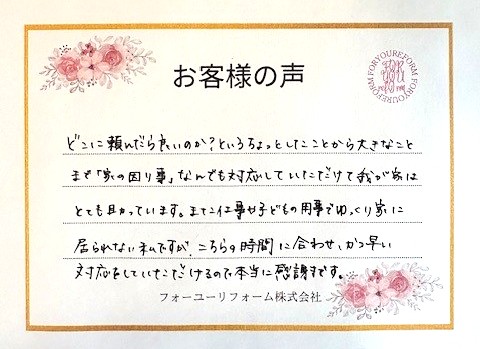 お客様の声
FORYOUREFORM FORYOUREFORM
どこに頼んだら良いのか？というちょっとしたことから大きなこと
まで「家の困り事」なんでも対応していただけて我が家は
とても助かっています。また仕事や子どもの用事でゆっくり家に
居られない私ですが、こちらの時間に合わせ、かつ早い
対応をしていただけるので本当に感謝です。
フォーユーリフォーム株式会社